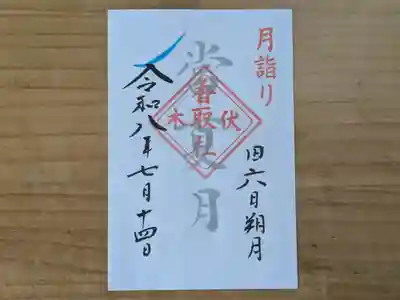 月詣り
旧六日朔月
常夏月
伏木
香取
令和八年七月十四日